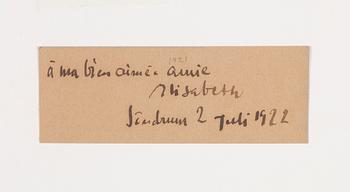 1921
à ma bien aimée amie
Elisabeth
Sindrum 2 juli 1922